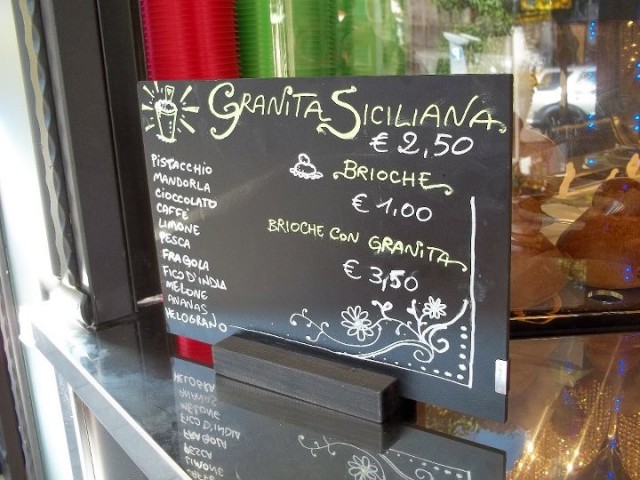 GRANITA SICILIANA
€ 2,50
BRIOCHE
€ 1,00
BRIOCHE CON GRANITA
€ 3,50
PISTACCHIO
MANDORLA
CIOCCOLATO
CAFFÈ
LIMONE
PESCA
FRAGOLA
FICO D'INDIA
MELONE
ANANAS
MELOGRANO